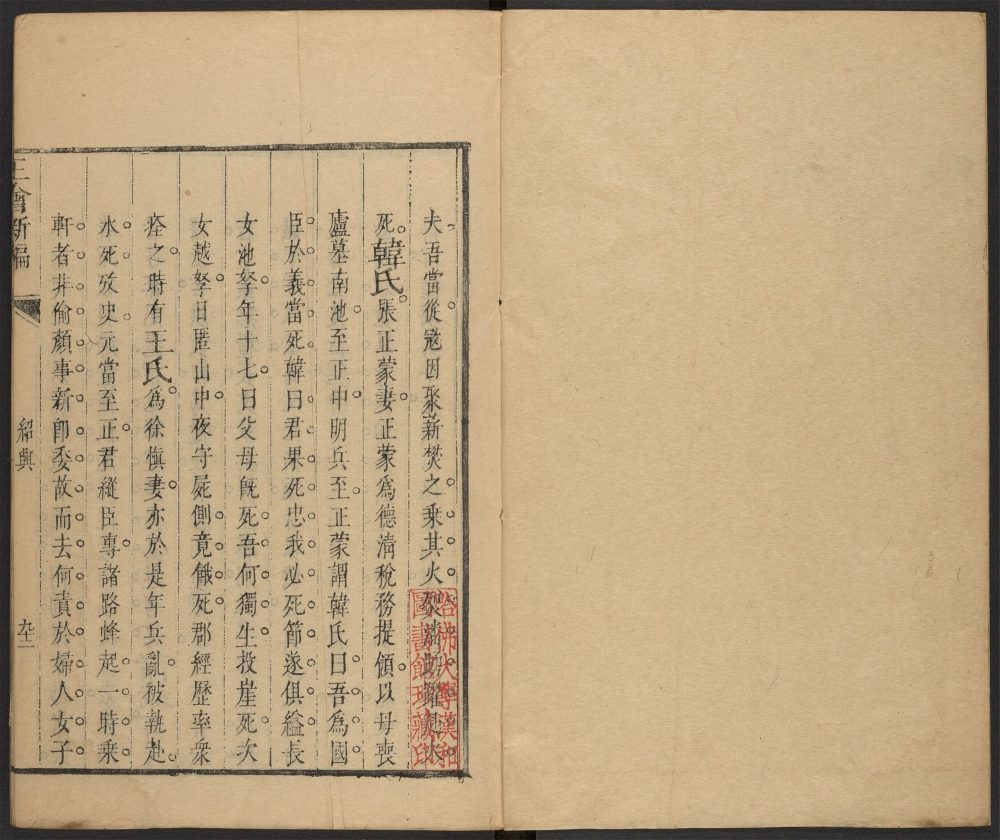 夫吾當從寇因聚薪焚之乘其火
死韓氏張正蒙妻正蒙爲德淸稅務提領以母喪
廬墓南池至正中明兵至正蒙謂韓氏曰吾爲國
臣於義當死韓曰君果死忠我必死節遂俱縊長
女池孥年十七曰父母旣死吾何獨生投崖死次
女越孥日匿山中夜守屍側竟餓死郡經歷率衆
痊之時有王氏爲徐愼妻亦於是年兵亂被執赴
水死攷史元當至正君縱臣專諸路蜂起一時乘
軒者非偷顏事新卽委故而去何責於婦人女子
王會新編
紹興
哈佛大學漢和
圖書館珍藏印